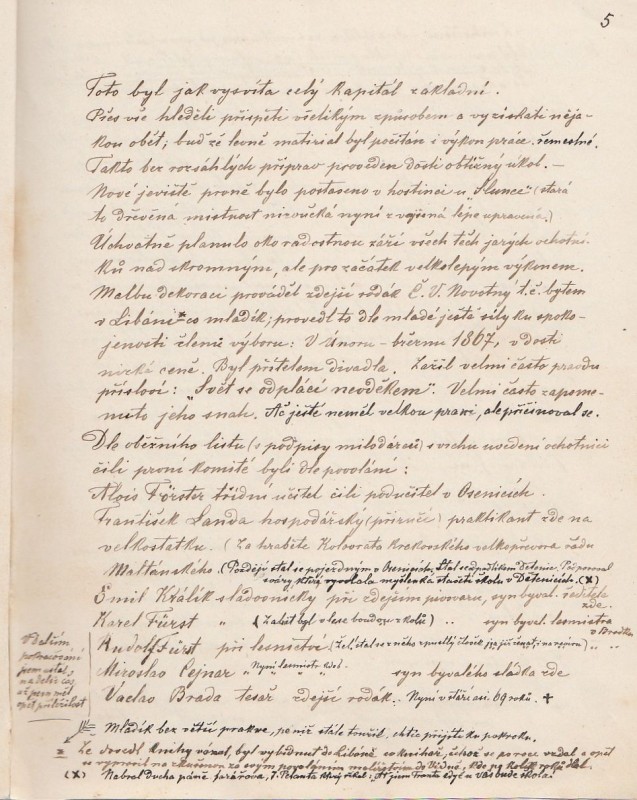 5
Toto byl jak vysvíta celý kapitál základní.
Přes vše hleděli přispěti všelikým způsobem a vyzískati něja-
kou oběť; buď že levně material byl počítán i výkon práce řemeslné.
Takto bez rozsáhlých příprav proveden dosti obtížný úkol. —
Nové jeviště prvně bylo postaveno v hostinci u „Slunce" (stará
to dřevěná místnost nizoučká nyní zvýšená lépe upravená.)
Úchvatně planulo oko radostnou září všech těch jarých ochotní-
ků nad skromným, ale pro začátek velkolepým výkonem.
Malbu dekorací prováděl zdejší rodák Č. V. Novotný t. č. bytem
v Libáni co mladík; provedl to dle mladé ještě síly ku spoko-
jenosti členů výboru: V Únoru - březnu 1867, v dosti
nízké ceně. Byl přítelem divadla. Zažil velmi často pravdu
přísloví: „Svět se odplácí nevděkem". Velmi často zapome-
nuto jeho snah. Ač ještě neměl velkou praxi, ale přičinoval se.
Dle oběžního listu (s podpisy milodárců) svrchu uvedení ochotníci
čili první komité byli dle povolání:
Alois Förster třídní učitel čili podučitel v Osenicích.
František Landa hospodářský (příručí) praktikant zde na
velkostatku. (Za hraběte Kolovrata Krakovského velkopřevora řádu
Maltánského. (Později stal se pojezdným v Osenicích, Stal se důchodním Detenice. Působil
sváry, který vyvolala myšlenka stavěti školu v Detenicích. (X)
Emil Králík sládovnický při zdejším pivovaru, syn býval. ředitele
zde.
Karel Fürst " (Zabit byl v lese boudou z kolů) .. syn býval. lesmistra
v Brodku
Rudolf Fürst při lesnictví (Žel, stal se z něho zpustlý člověk
Miroslav Cejnar " Nyní lesmistr " syn bývalého sládka zde
Václav Brada tesař zdejší rodák. Nyní v stáří asi 69 roků. ✝
V dalším
pokračování
přestal
na delší čas,
až zase měl
opět příležitost
Mladík bez větší prakse, po níž stále toužil, chtíc přijíti ku pokroku.
Že dovedl knihy vázat, byl vybídnut do Libáně co knihař, čehož se po roce vzdal a opět
(X) Nabral Ducha páně farářova,